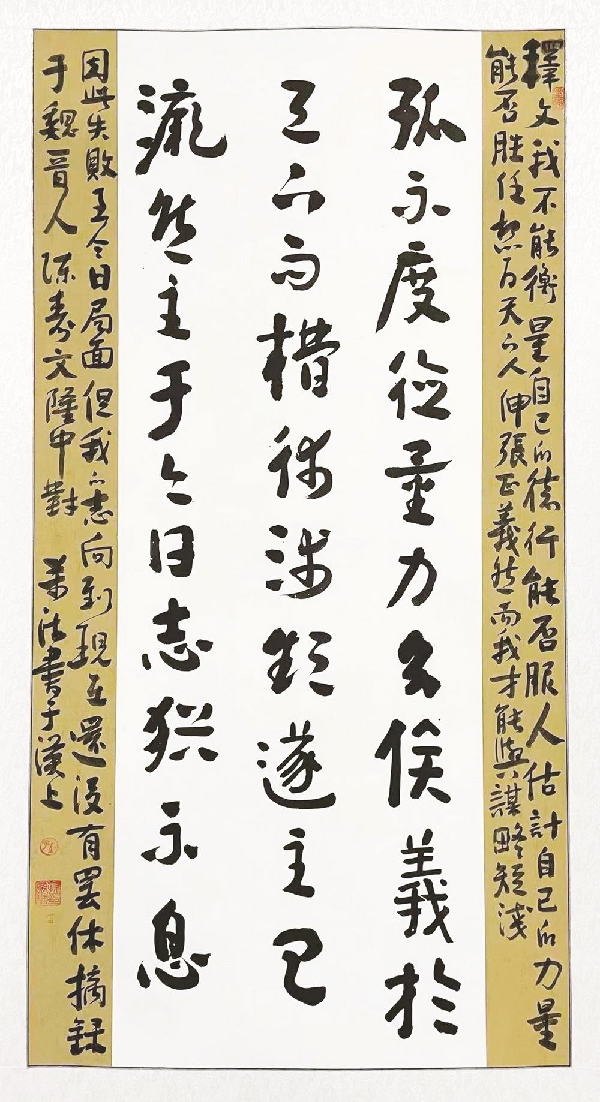 釋文我不能衡量自己的德行能否服人估計自己的力量
能否胜任天下人伸張正義然而我才能與謀略短淺
孤不度德量力義於
天下而術淺遂
于今日志猶不息
因此失敗至今日局面但我的志向到現在還没有罢休摘録
于魏晋人陈寿文隆中對 書于漢上